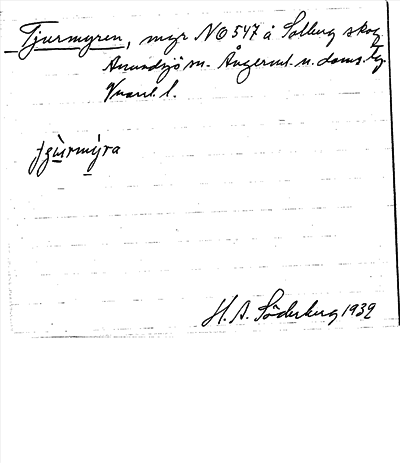 Tjurmyren, myr NO 547 å Solberg skog
Anundsjö sn. Ångerml. n. doms.
Vnorrl. l.
H. A. Söderberg 1939